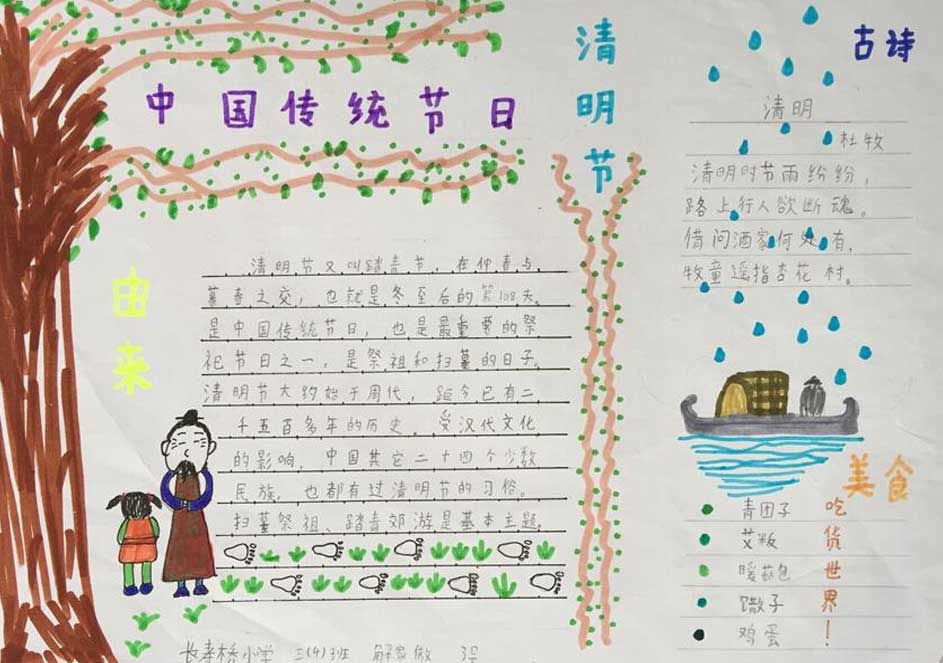 中国传统节日
清明节
由来
清明节又叫踏青节，在仲春与
暮春之交，也就是冬至后的第108天。
是中国传统节日，也是最重要的祭
祀节日之一，是祭祖和扫墓的日子。
清明节大约始于周代，距今已有二
千五百多年的历史。受汉代文化
的影响，中国其它二十四个少数
民族，也都有过清明节的习俗。
扫墓祭祖、踏青郊游是基本主题。
长寿桥小学 三(4)班
古诗
清明
杜牧
清明时节雨纷纷，
路上行人欲断魂。
借问酒家何处有，
牧童遥指杏花村。
美食
青团子
艾粄
暖菇包
馓子
鸡蛋
吃货世界！